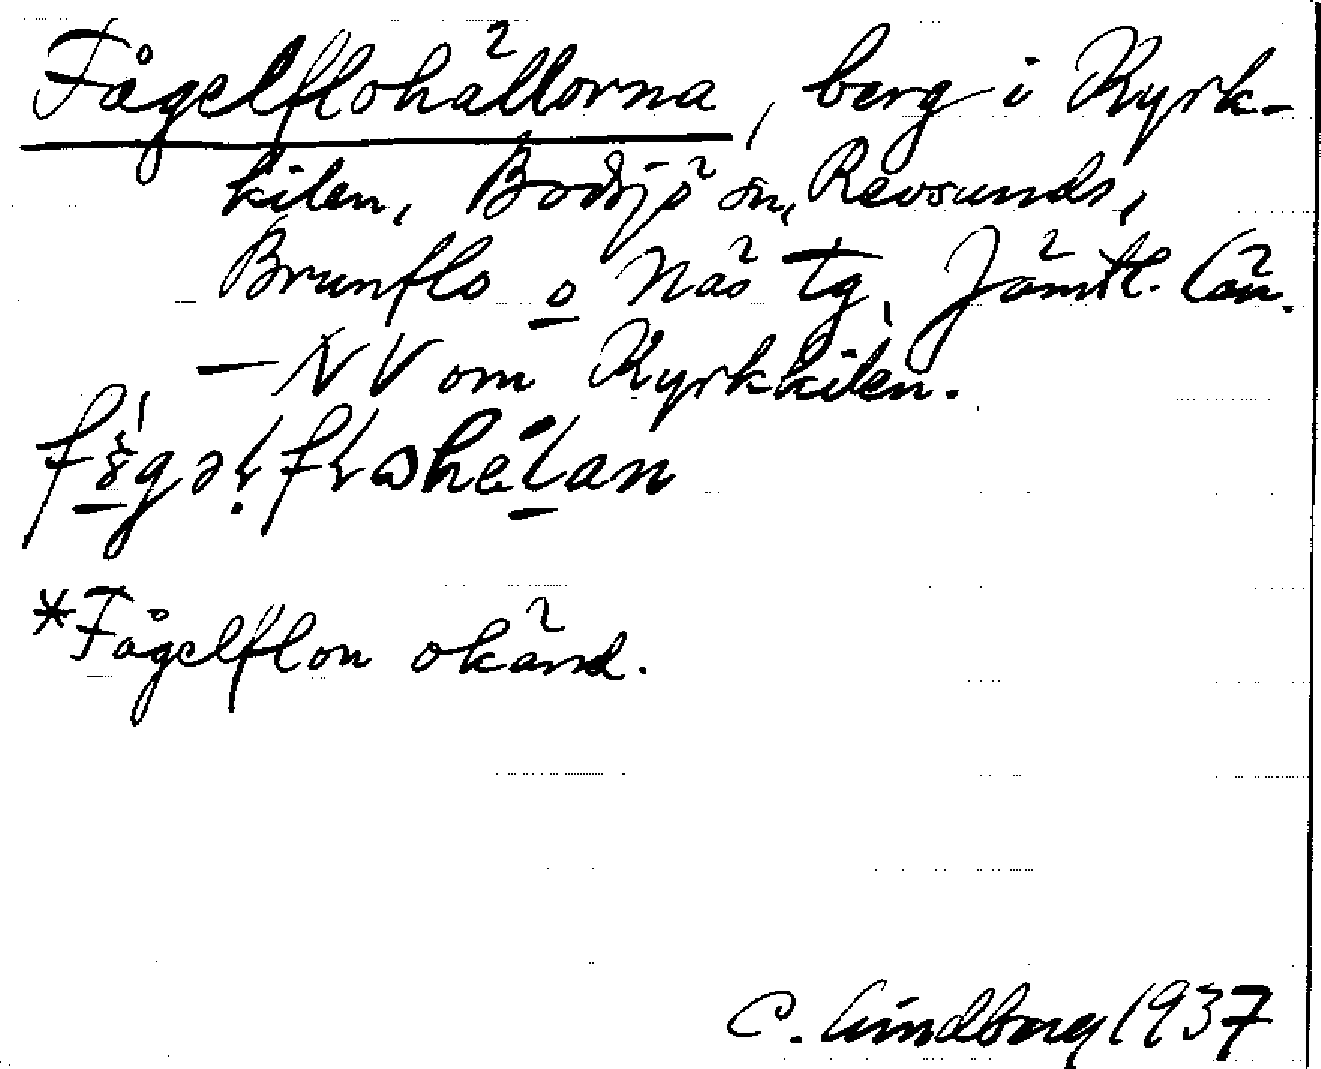 Fågelflohällorna, berg i Kyrk-
kilen, Bodsjö sn, Revsunds,
Brunflo o Näs tg, Jämtl. län.
— NV om Kyrkkilen.
*Fågelflon okänd.
C. Lindberg 1937